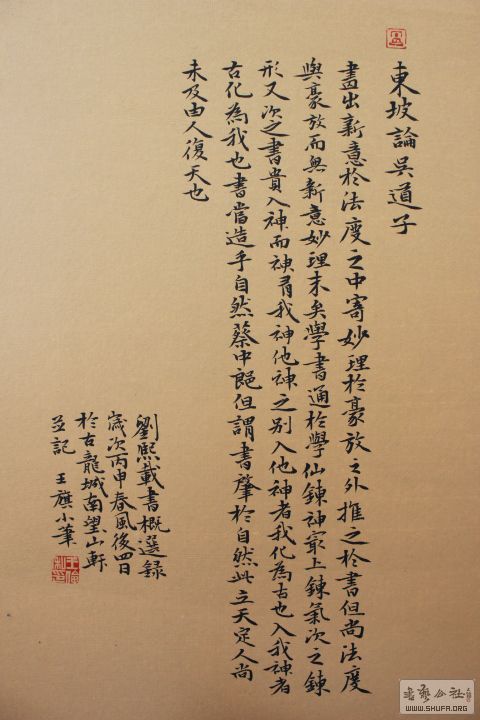 東坡論吳道子
畫出新意於法度之中寄妙理於豪放之外推之於書但尚法度
與豪放而無新意妙理末矣學書通於學仙鍊神最上鍊氣次之鍊
形又次之書貴入神而神有我神他神之別入他神者我化為古也入我神者
古化為我也書當造乎自然蔡中郎但謂書肇於自然此立天定人尚
未及由人復天也
劉熙載書概選錄
歲次丙申春風後四日
於古龍城南望山軒
並記 王旗小筆
WWW.SHUFA.ORG